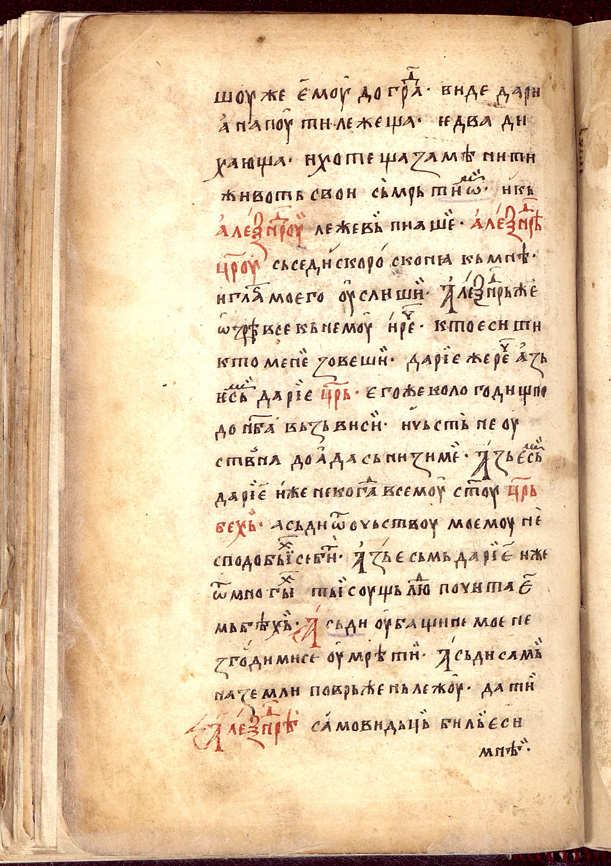 шоу же ємоу до гра⁠ⷣ. виде дари
а на поути лежеща. ѥдва ди
хающа. и хотеща замѣнити
животь свои сьмрьти ѿ. и кь
алеѯⷣнроу лежевь пиаше. алеѯⷣнрѣ
цр҃оу сьседи скоро с кона кь мнѣ.
и гла҃ моего оуслиши. Алеѯⷣнрь же
ѡзрѣв се кь немоу и реⷱ. кто еси ти
кто мене зовеши. дарїе же реⷱ азь
есⷨь дарїе цр҃ь. егоже коло годищно
до нб҃а вьзвиси. и чьстьне оу
ств҃на до ада сьнизи ме. Азь есⷨь
дарїе иже некогⷣа всемоу с҃тоу цр҃ь
бехь. а сьди ѿчьствоу моемоу не
сподобиⷯ се бити. Азь есьмь дарїе иже
ѿ многыⷯ тысоущь люⷣ почитае
мь бѣхь. А сьди оу бащине мое не
згоди ми се оумрѣти. А сьди самь
на земли поврьжень лежоу. да ти
Алеѯⷣнрѣ самовидьць биль еси
мнѣ.